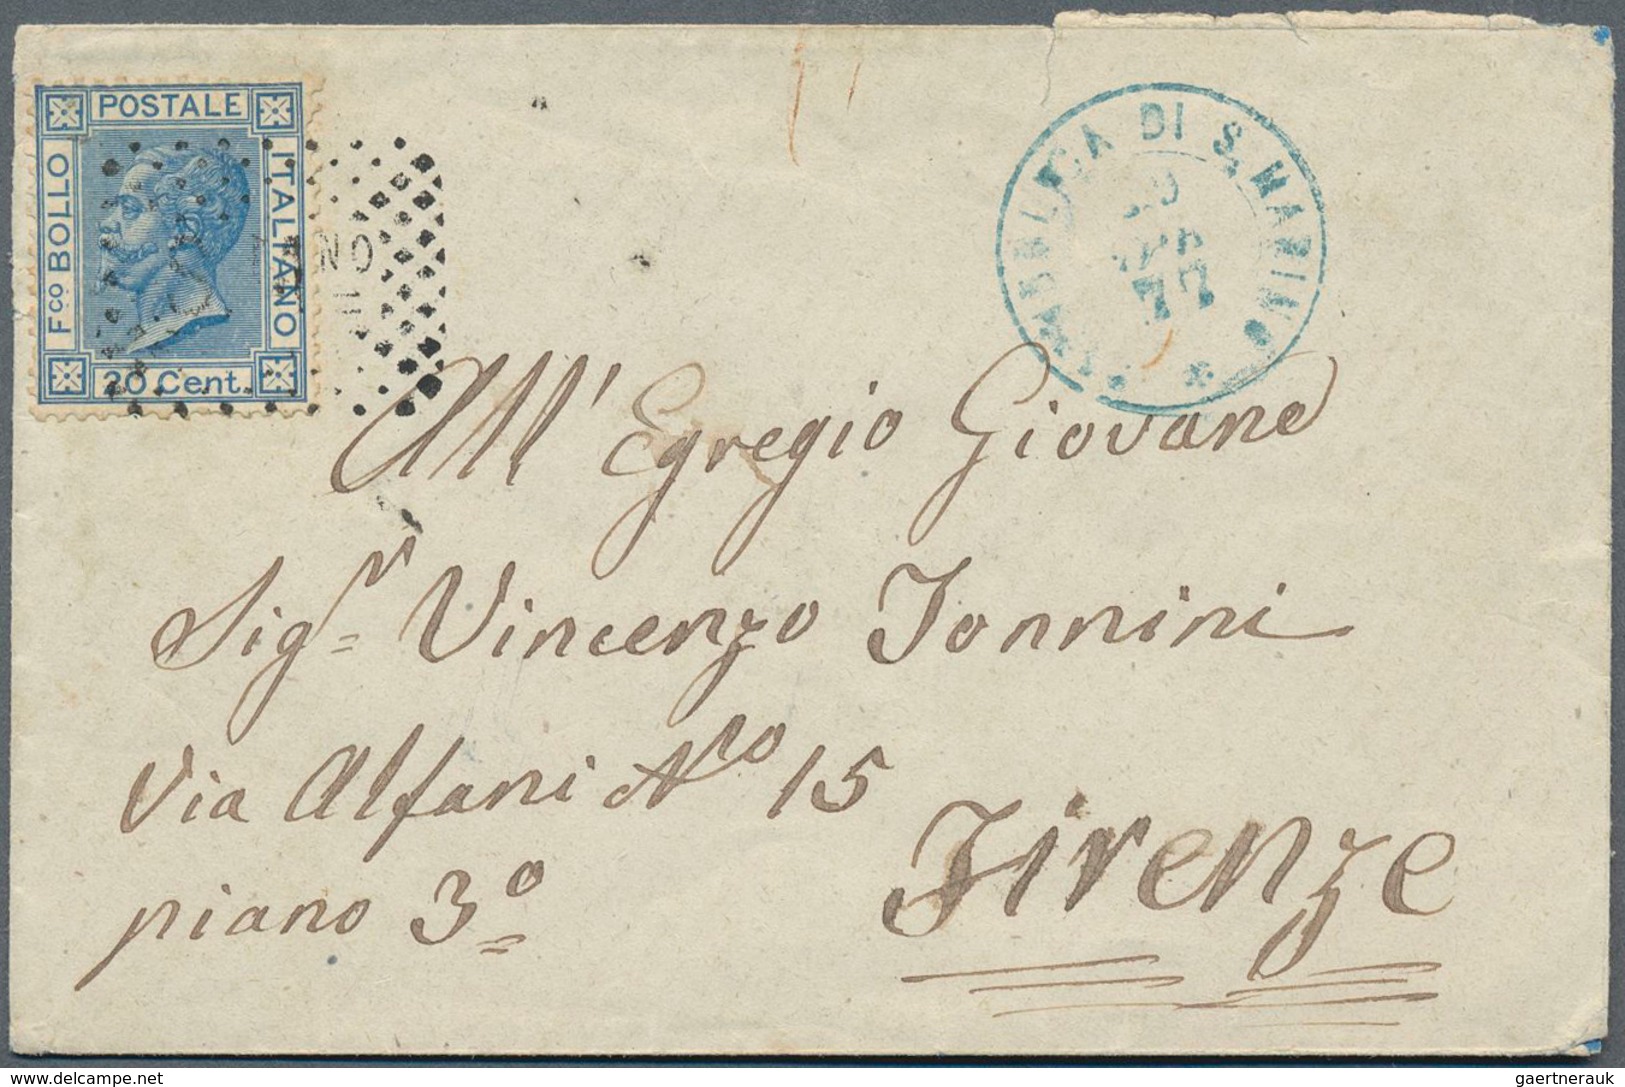 POSTALE
Fco BOLLO
ITALIANO
20 Cent.
NO
DI S. MARINO
77
All' Egregio Giovane
Sigr Vincenzo Tonnini
Via Alfani No 15
piano 3o
Firenze
delcampe.net
gaertnerauk